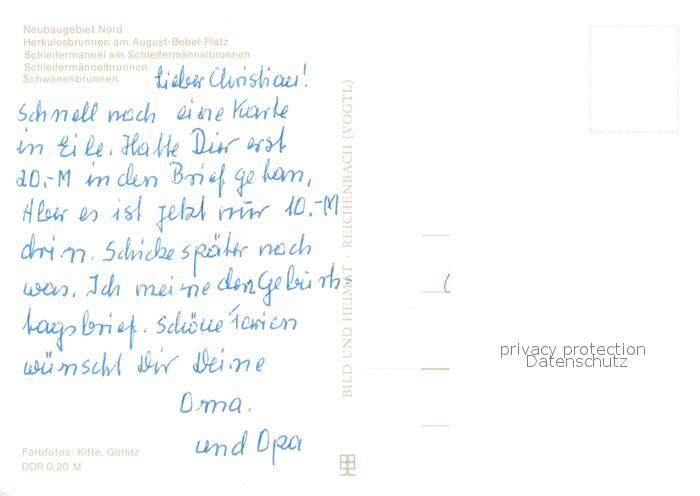 Neubaugebiet Nord
Herkulesbrunnen am August-Bebel-Platz
Schleifermännel am Schleifermännelbrunnen
Schleifermännelbrunnen
Schwanenbrunnen
Lieber Christian!
Schnell noch eine Karte
in Eile. Hatte Dir erst
20,-M in den Brief getan,
Aber es ist jetzt nur 10.-M
drin. Schicke später noch
was. Ich meine den Geburts-
tagsbrief. Schöne Ferien
wünscht Dir Deine
Oma.
und Opa
Farbfotos: Kitte, Görlitz
DDR 0,20 M
BILD UND HEIMAT · REICHENBACH (VOGTL)
privacy protection
Datenschutz